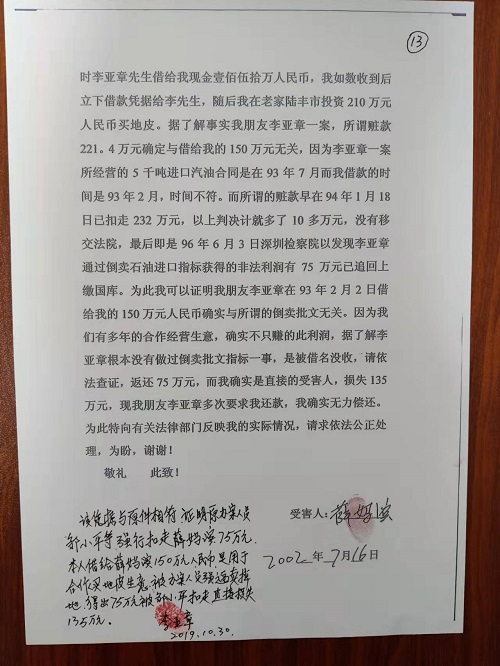 13
时李亚章先生借给我现金壹佰伍拾万人民币，我如数收到后
立下借款凭据给李先生，随后我在老家陆丰市投资 210 万元
人民币买地皮。据了解事实我朋友李亚章一案，所谓赃款
221。4 万元确定与借给我的 150 万元无关，因为李亚章一案
所经营的 5 千吨进口汽油合同是在 93 年 7 月而我借款的时
间是 93 年 2 月，时间不符。而所谓的赃款早在 94 年 1 月 18
日已扣走 232 万元，以上判决计就多了 10 多万元，没有移
交法院，最后即是 96 年 6 月 3 日深圳检察院以发现李亚章
通过倒卖石油进口指标获得的非法利润有 75 万元已追回上
缴国库。为此我可以证明我朋友李亚章在 93 年 2 月 2 日借
给我的 150 万元人民币确实与所谓的倒卖批文无关。因为我
们有多年的合作经营生意，确实不只赚的此利润，据了解李
亚章根本没有做过倒卖批文指标一事，是被借名没收，请依
法查证，返还 75 万元，而我确实是直接的受害人，损失 135
万元，现我朋友李亚章多次要求我还款，我确实无力偿还。
为此特向有关法律部门反映我的实际情况，请求依法公正处
理，为盼，谢谢！
敬礼 此致！
受害人：薛妈滨
2002年7月16日
该凭据与原件相符 证明原办案人员
小平等强行扣走薛妈滨75万元.
本人借给薛妈滨150万元人民币是用于
合作买地皮生意.被办案人员强逼卖掉
地.得出75万元被小平扣走直接损失
135万元.
李亚章
2019.10.30.